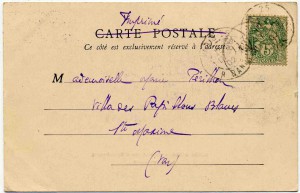 Imprimé
CARTE POSTALE
Ce côté est exclusivement réservé à l'adresse
Mademoiselle
Villa des Papillons Blancs
Ste Maxime
(Var)